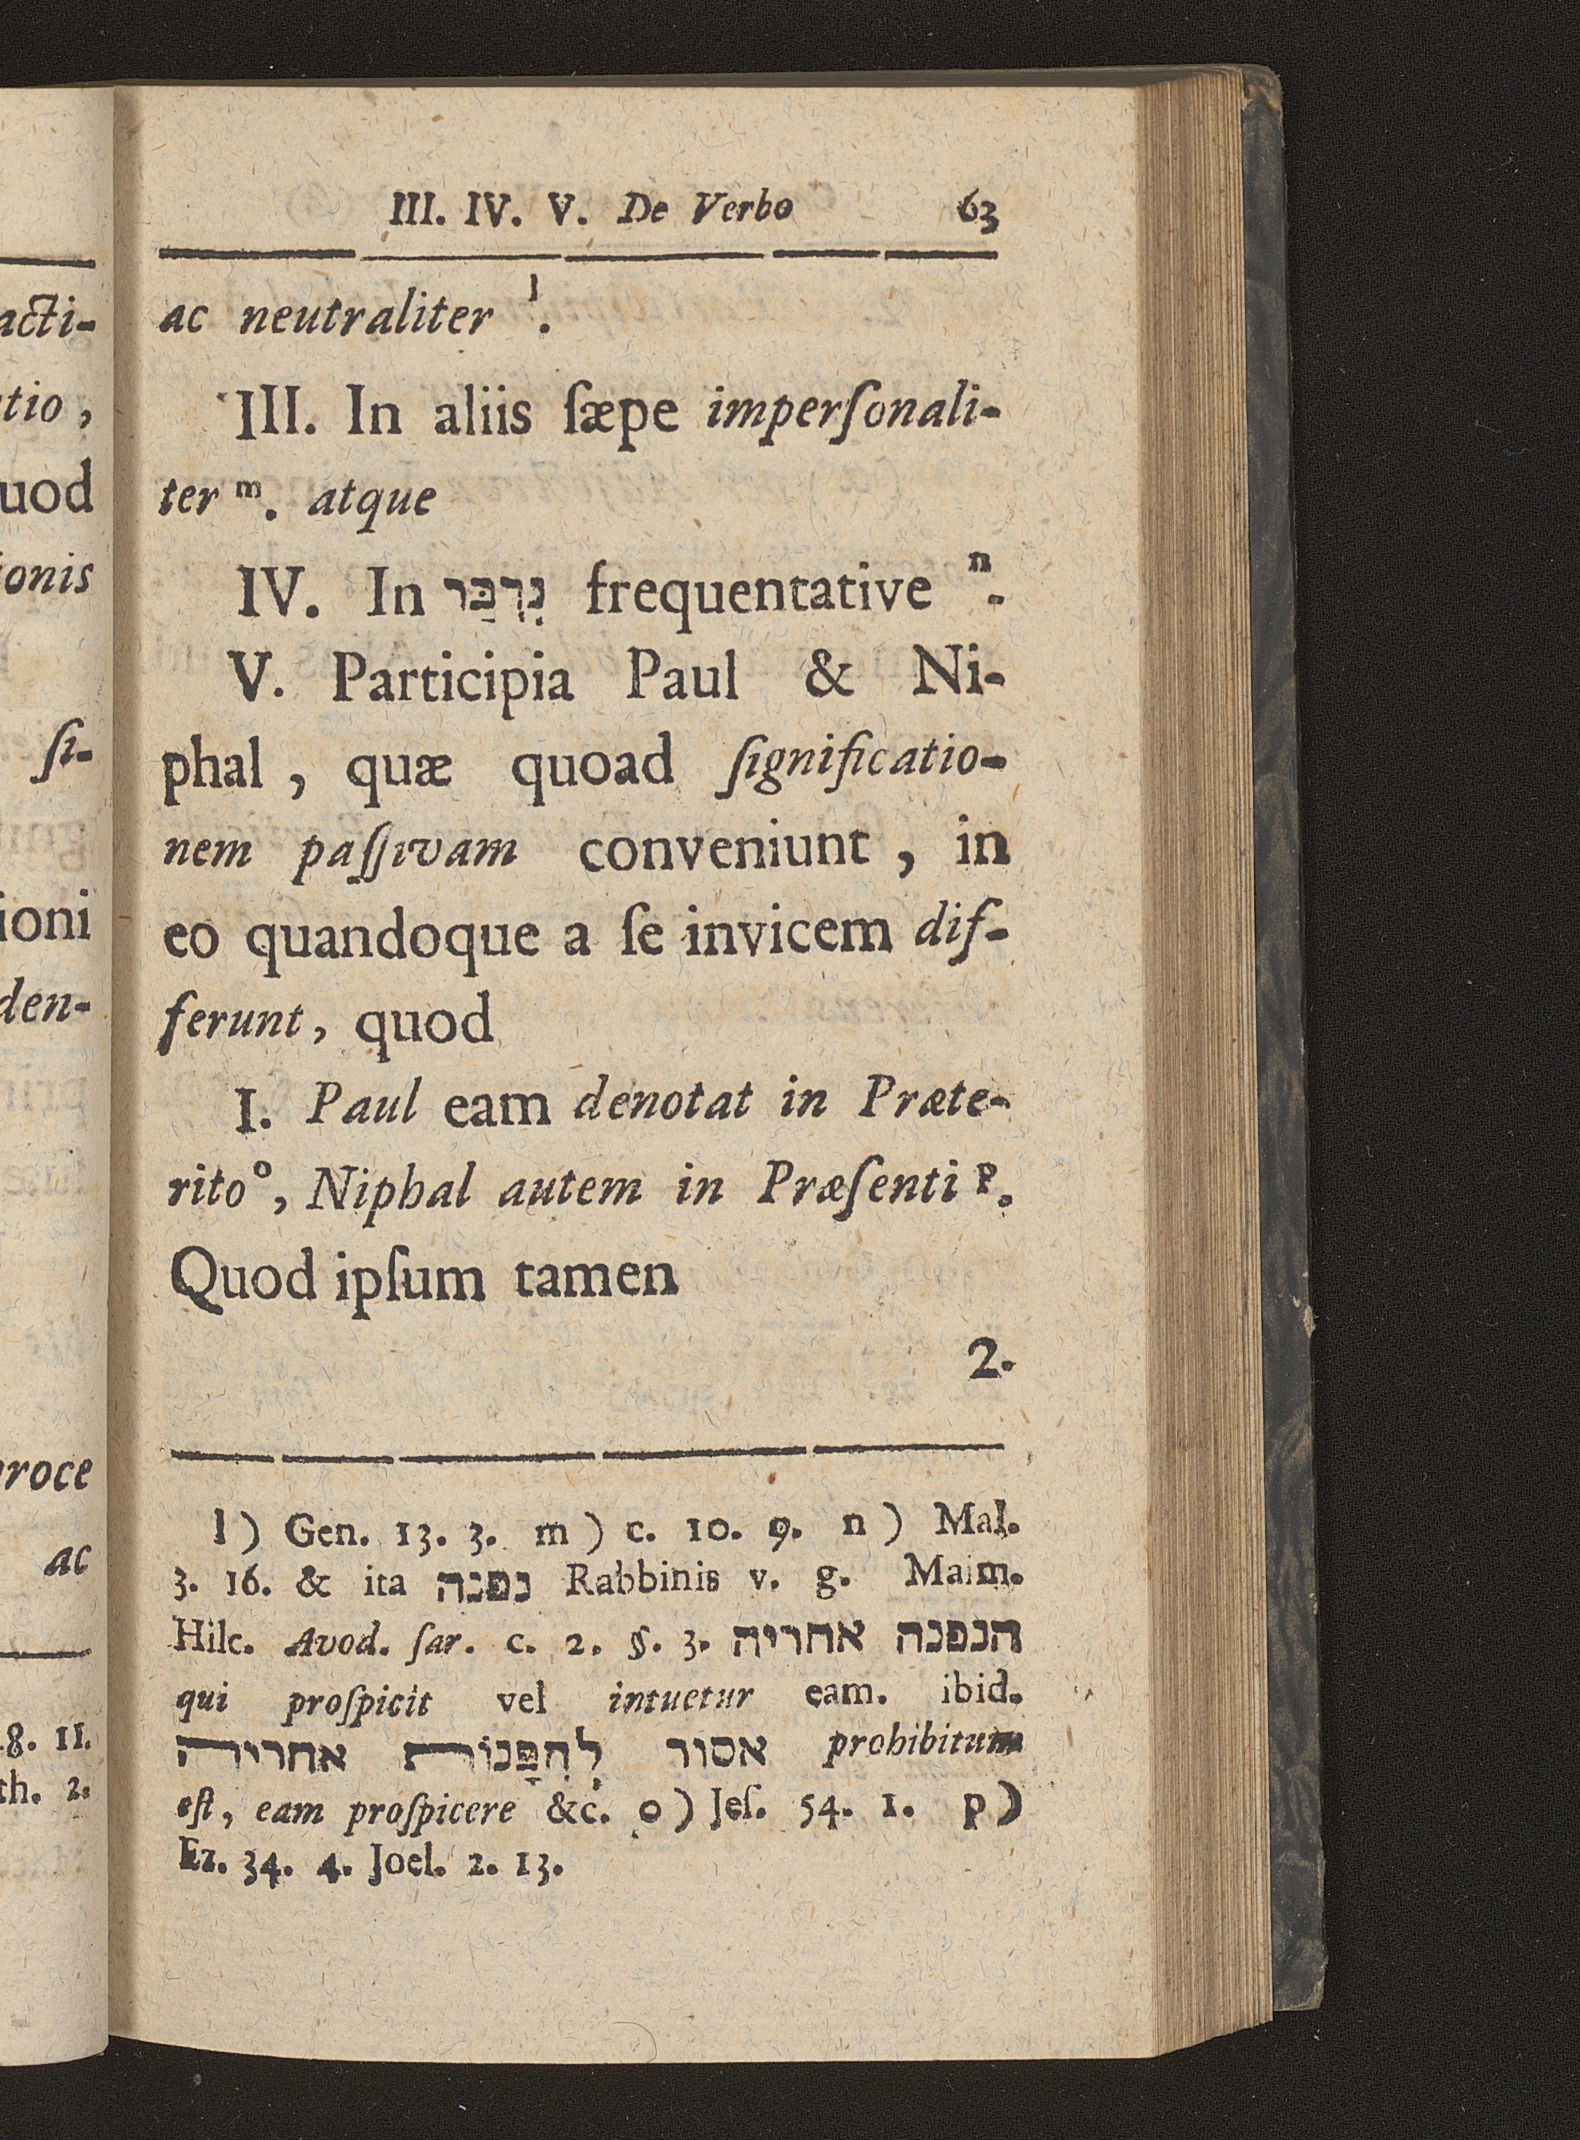 acti-
tio,
uod
ionis
ſi-
ioni
den-
proce
ac
8. 11.
th. 2.
III. IV. V. De Verbo 63
ac neutraliter l.
III. In aliis ſæpe imperſonali-
ter m. atque
IV. In נִדְבַּר frequentative n.
V. Participia Paul & Ni-
phal, quæ quoad ſignificatio-
nem paſſivam conveniunt, in
eo quandoque a ſe invicem dif-
ferunt, quod
I. Paul eam denotat in Præte-
rito o, Niphal autem in Præſenti p.
Quod ipſum tamen
2.
l) Gen. 13. 3. m) c. 10. 9. n) Mal.
3. 16. & ita נפנה Rabbinis v. g. Maim.
Hilc. Avod. ſar. c. 2. §. 3. הנפנה אחריה
qui proſpicit vel intuetur eam. ibid.
אסור לְהִפָּנוֹת אחריה prohibitum
eſt, eam proſpicere &c. o) Jeſ. 54. 1. p)
Ez. 34. 4. Joel. 2. 13.